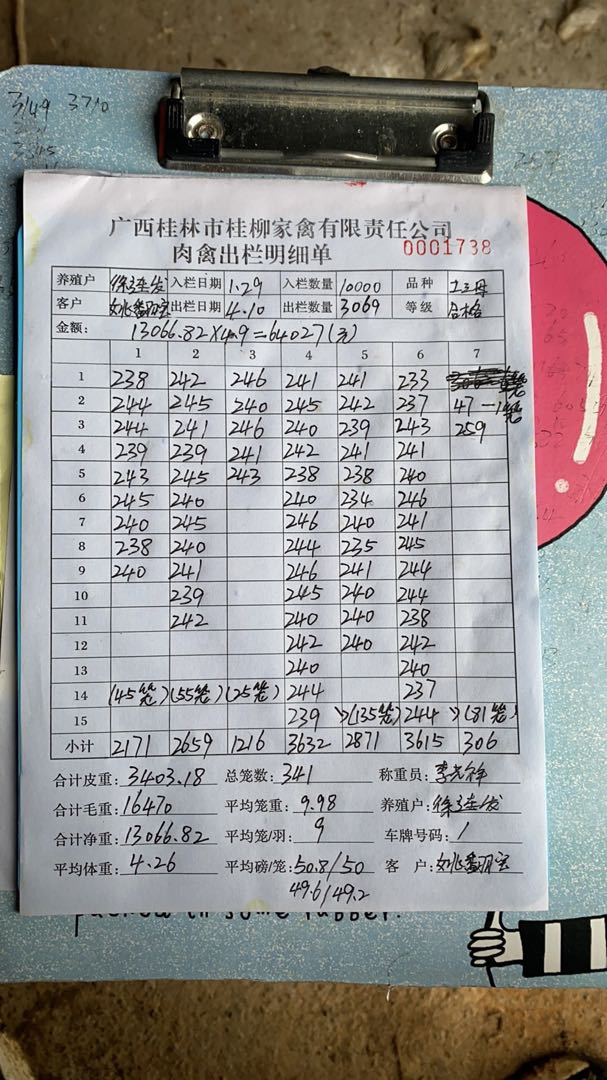 3149 3710
广西桂林市桂柳家禽有限责任公司
肉禽出栏明细单 0001738
养殖户 入栏日期 1.29 入栏数量 10000 品种 土三母
客户 出栏日期 4.10 出栏数量 3069 等级 合格
金额: 13066.82×4.9=64027(元)
1 2 3 4 5 6 7
1 238 242 246 241 241 233
2 244 245 240 245 242 237 47 一1笼
3 244 241 246 240 239 243 259
4 239 239 241 242 241 241
5 243 245 243 238 238 240
6 245 240 240 234 246
7 240 245 246 240 241
8 238 240 244 235 245
9 240 241 246 241 244
10 239 245 240 244
11 242 240 240 238
12 242 240 242
13 240 240
14 (45笼) (55笼) (25笼) 244 237
15 239 (135笼) 244 (81笼)
小计 2171 2659 1216 3632 2871 3615 306
合计皮重: 3403.18 总笼数: 341 称重员:
合计毛重: 16470 平均笼重: 9.98 养殖户:
合计净重: 13066.82 平均笼/羽: 9 车牌号码: /
平均体重: 4.26 平均磅/笼: 50.8/50 客 户:
49.6/49.2